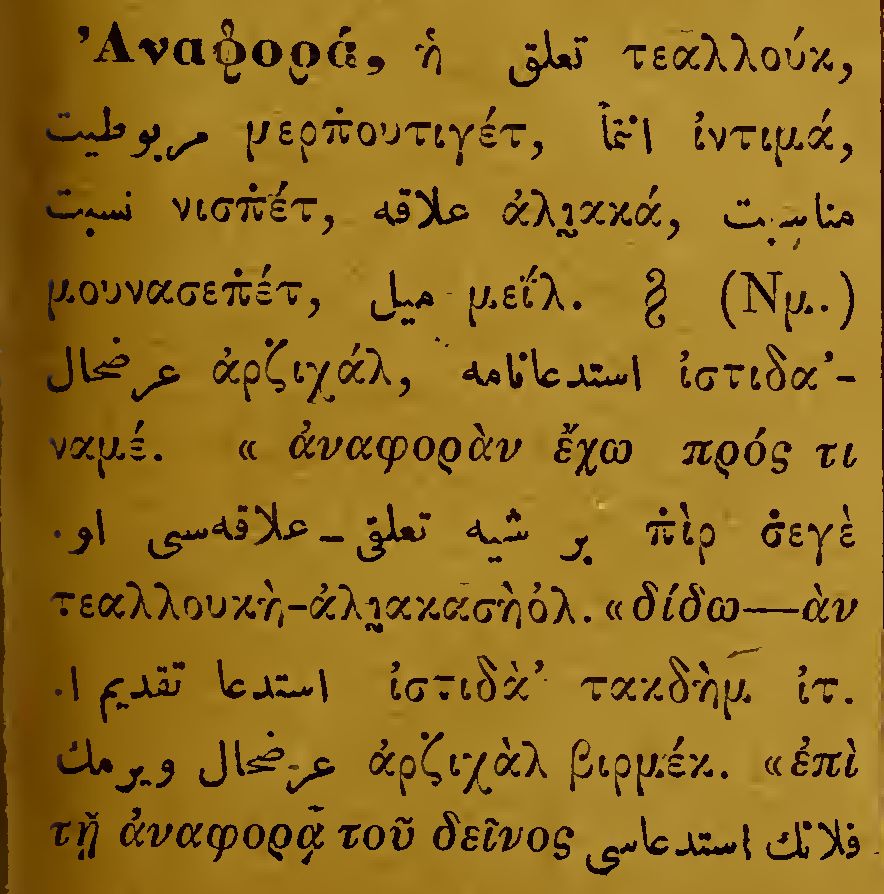 Ἀναφορά, ἡ تعلق τεαλλούκ,
مربوطيت μερπ̇ουτιγέτ, انتما ἰντιμά,
نسبت νισπ̇έτ, علاقه ἀλι̰ακκά, مناسبت
μουνασεπ̇έτ, ميل μεΐλ. § (Νμ.)
عرضحال ἀρζιχάλ, استدعانامه ἰστιδα’-
ναμέ. « ἀναφορὰν ἔχω πρός τι
بر شيه تعلق-علاقه‌سى او. π̇ὶρ σ̇εγὲ
τεαλλουκὴ-ἀλι̰ακασὴὀλ. «δίδω—ὰν
استدعا تقديم ا. ἰστιδὰ’ τακδὴμ ἰτ.
عرضحال ويرمك ἀρζιχὰλ βιρμέκ. «ἐπὶ
τῇ ἀναφορᾷ τοῦ δεῖνος فلانك استدعاسى